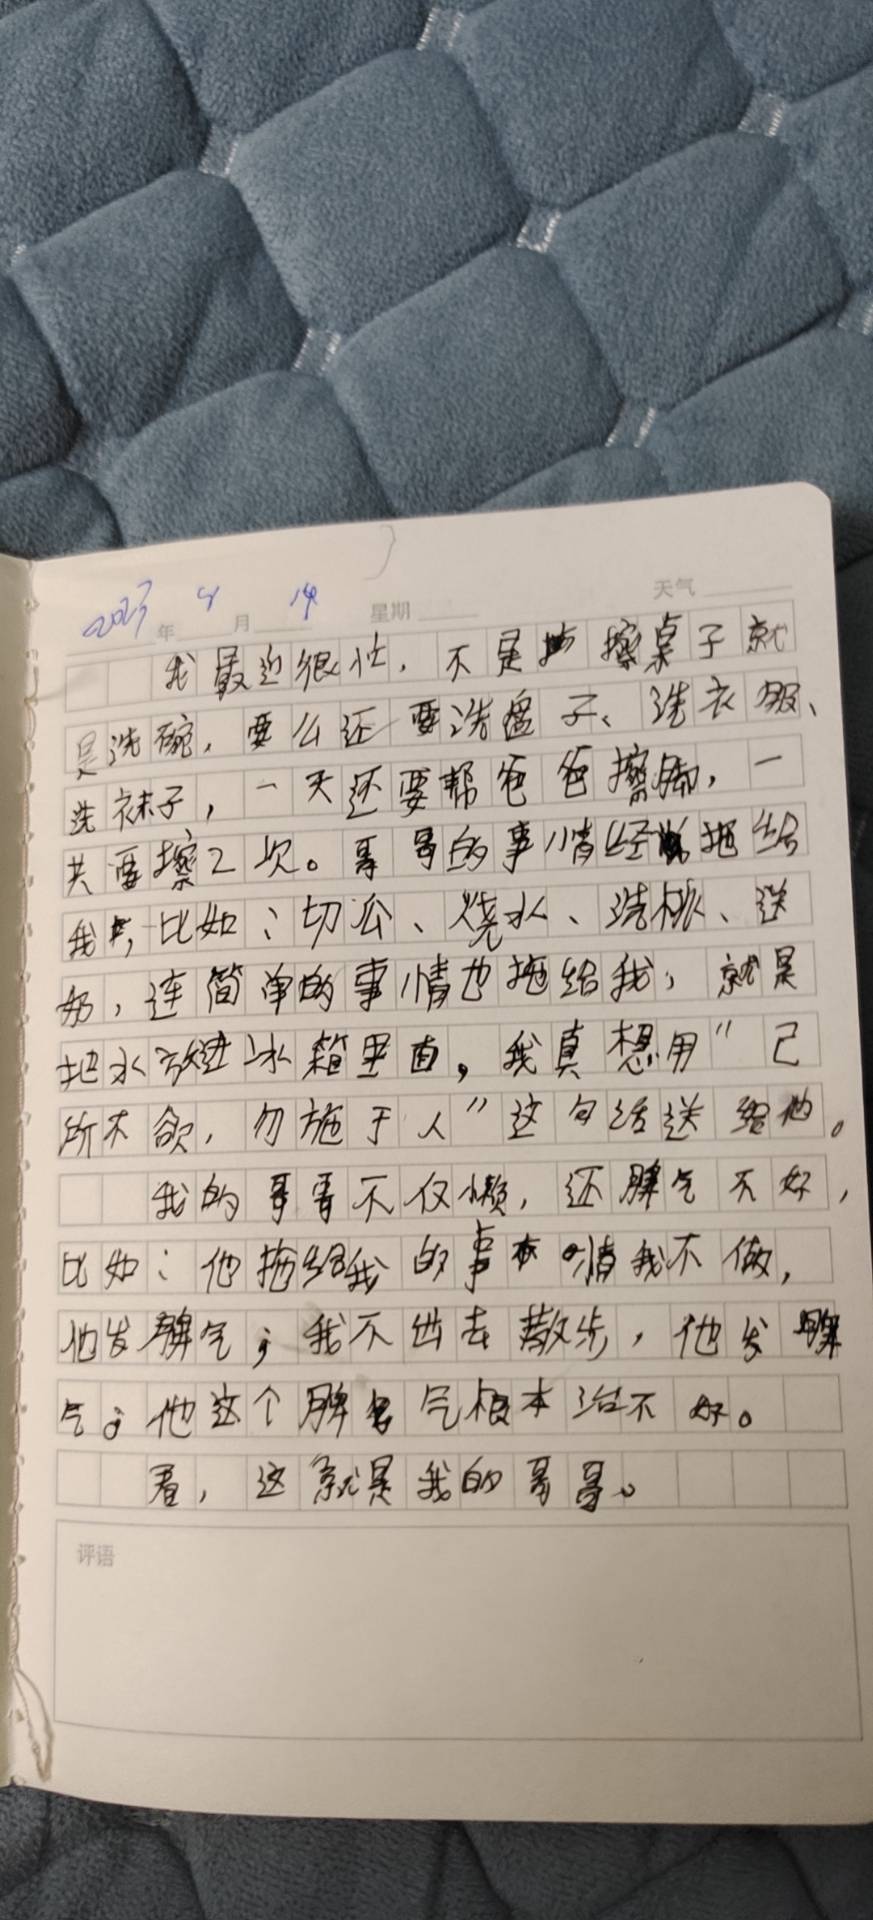 2023年 4月 14 星期 天气
我最近很忙，不是擦桌子就
是洗碗，要么还要洗盘子、洗衣服、
洗袜子，一天还要帮爸爸擦脚，一
共要擦2次。哥哥的事情经常拖给
我，比如：切瓜、烧水、洗桃、送
奶，连简单的事情也拖给我，就是
把水放进冰箱里面，我真想用"己
所不欲，勿施于人"这句话送给他。
我的哥哥不仅懒，还脾气不好，
比如：他拖给我的事情我不做，
他发脾气；我不出去散步，他发脾
气；他这个脾气根本治不好。
看，这就是我的哥哥。
评语